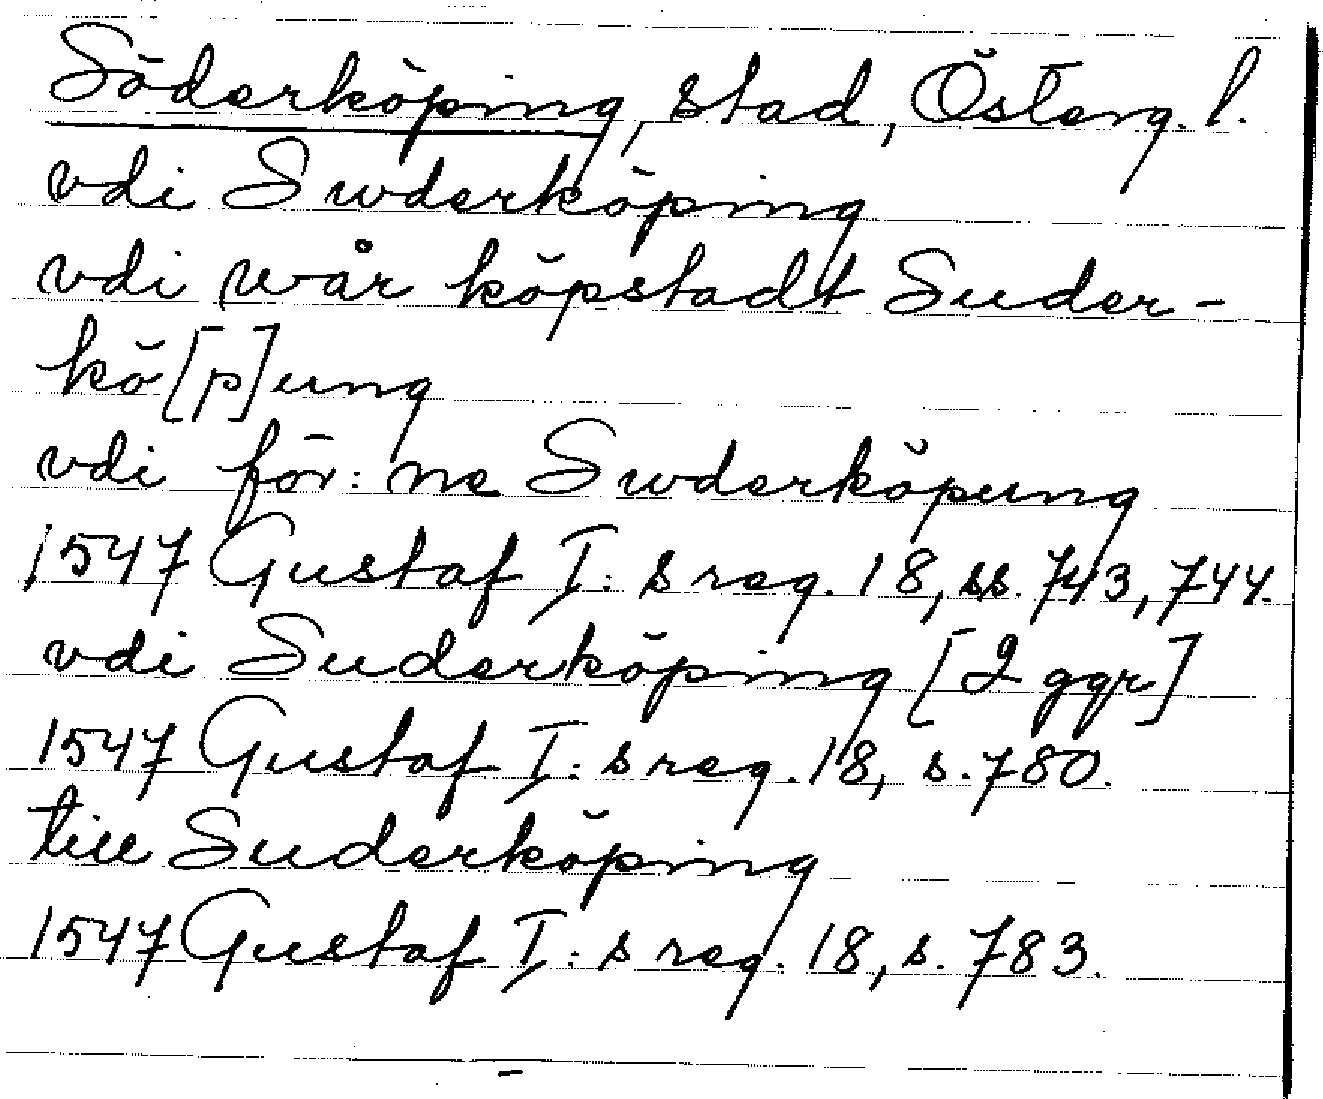 Söderköping, stad, Österg. l.
vdi Swderköping
vdi wår köpstadt Suder-
kö[p]ung
vdi för:ne Swderköpung
1547 Gustaf I:s reg. 18, ss. 743, 744.
vdi Suderköping [2 ggr]
1547 Gustaf I:s reg. 18, s. 780.
till Suderköping
1547 Gustaf I:s reg. 18, s. 783.